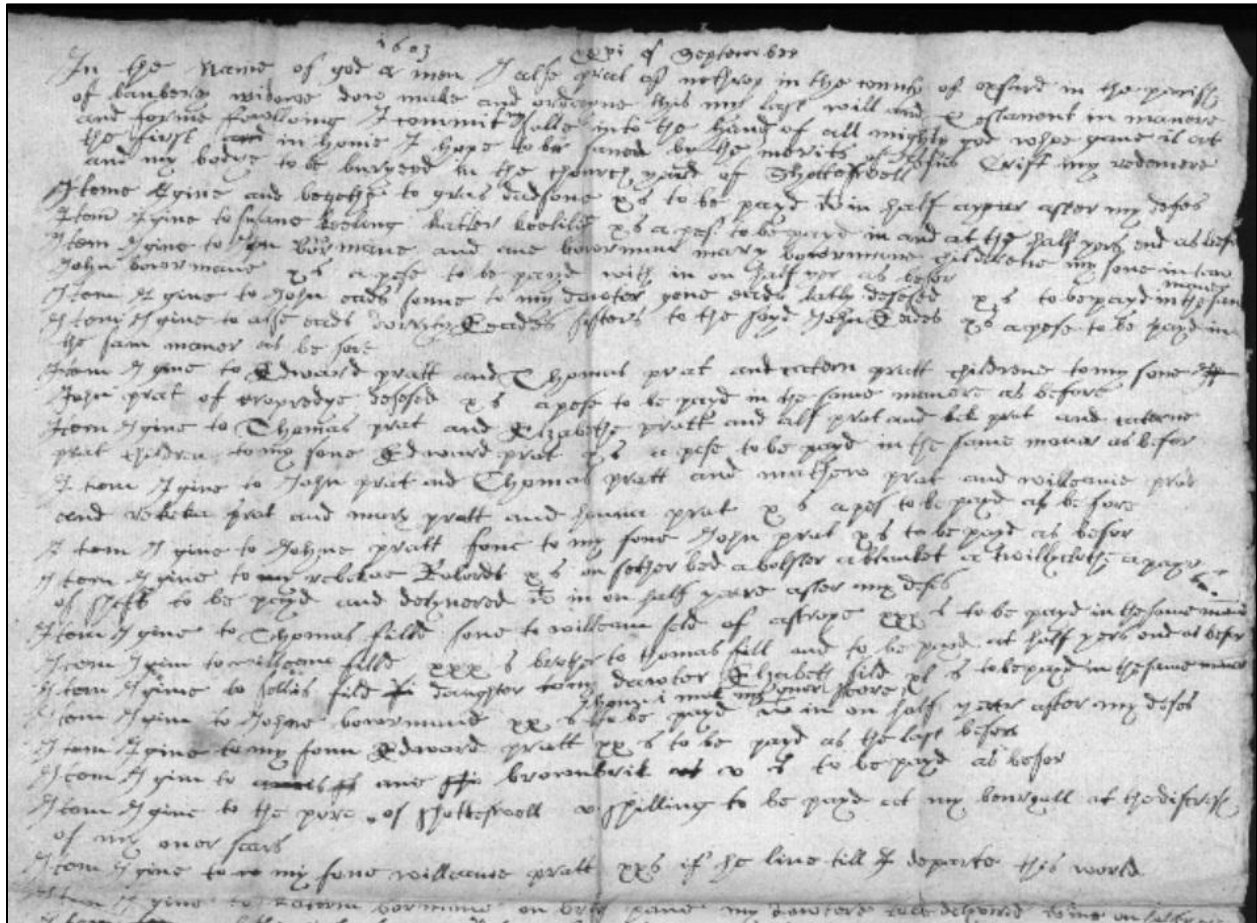 1603 xxvi of September
In the Name of god a men I alse prat of nethrop in the county of oxford in the parish
of banbery widowe doe make and ordayne this my last will and testament in manere
and forme following I commit my solle into the hand of all mighty god whoe gave it at
the first in home I hope to be saved by the merits of Jesus Crist my redemere
and my bodye to be buryed in the church yard of Shotteswell
Iteme I give and beqethe to gras dadsone xs to be payd win half a year after my deses
Item I give to keeling xs apes to be payd in and at the half yers end as befor
Item I give to bowrmane and ane bowrman mary bowrmane childrene my sone in law
John bowrmane xs a pese to be payd with in on half yer as befor
Item I give to John eads sonne to my dawter eads latly desesed xs to be payd in the sam
maner
Item I give to alse eads Eades sisters to the sayd John Eades xs apese to be payd in
the sam maner as be fore
Item I give to Edward pratt and Thomas prat and catern pratt childrene to my sone
John prat of cropredye desesed xs apese to be payd in the same manere as before
Item I give to Thomas prat and Elizabethe pratt and alse prat and prat and caterne
prat children to my sone Edward prat xs a pese to be payd in the same manar as befor
Item I give to John prat and Thomas pratt and mathew prat and williame prat
and rebeka prat and mary pratt and prat xs apes to be payd as be fore
Item I give to Johne pratt sone to my sone John prat xs to be payd as befor
Item I give to rebekae xs on fether bed a bolster a blanket a twillyclothe a payr
of shets to be payd and delyvered win on half yeare after my deses
Item I give to Thomas filld sone to willeam feld of astrope xxx s to be payd in the same
Item I give to willeam filld xxx s brother to thomas fill and to be payd at half yers end as befor
Item I give to fild daughter to my dawter Elizabeth fild xl s to be payd in the same manar
Item I give to Johne bowrmane xx s to be payd win on half yeare after my deses
Item I give to my sonn Edward pratt xx s to be payd as the last befor
Item I give to ane brownbrik v s to be payd as befor
Item I give to the pore of shotteswell v shilling to be payd at my beuryall at the
of my over sears
Item I give to my sone willeame pratt xxs if he live till I departe this world
Item I give to katern bormane on my dawters